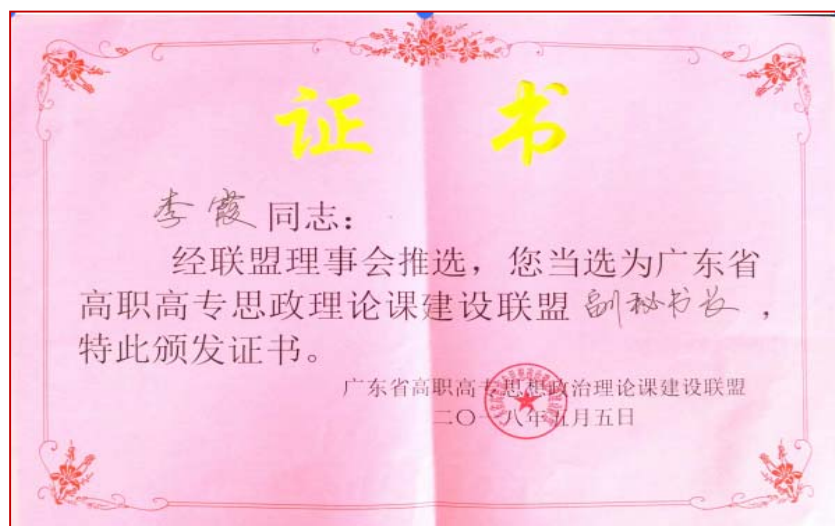 证 书
李霞同志：
经联盟理事会推选，您当选为广东省
高职高专思政理论课建设联盟副秘书长，
特此颁发证书。
广东省高职高专思想政治理论课建设联盟
二〇一八年五月五日